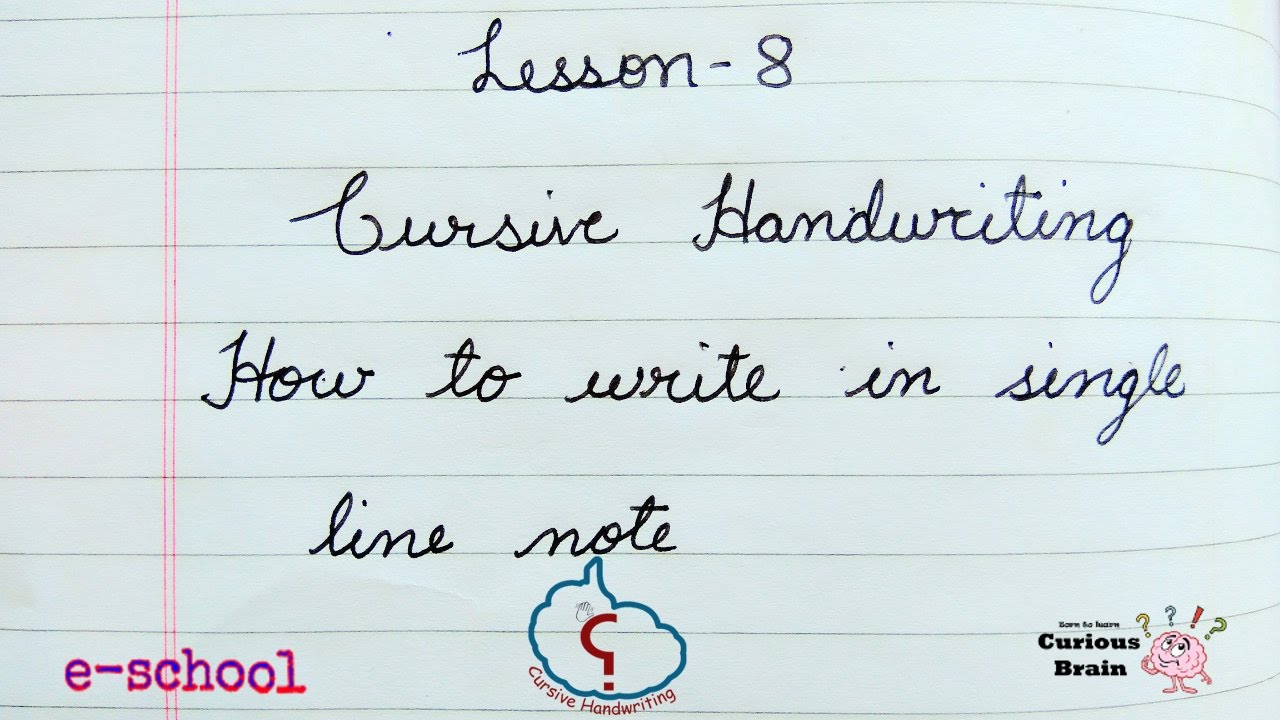 Lesson - 8
Cursive Handwriting
How to write in single
line note
e-school
Cursive Handwriting
Born to learn
Curious
Brain